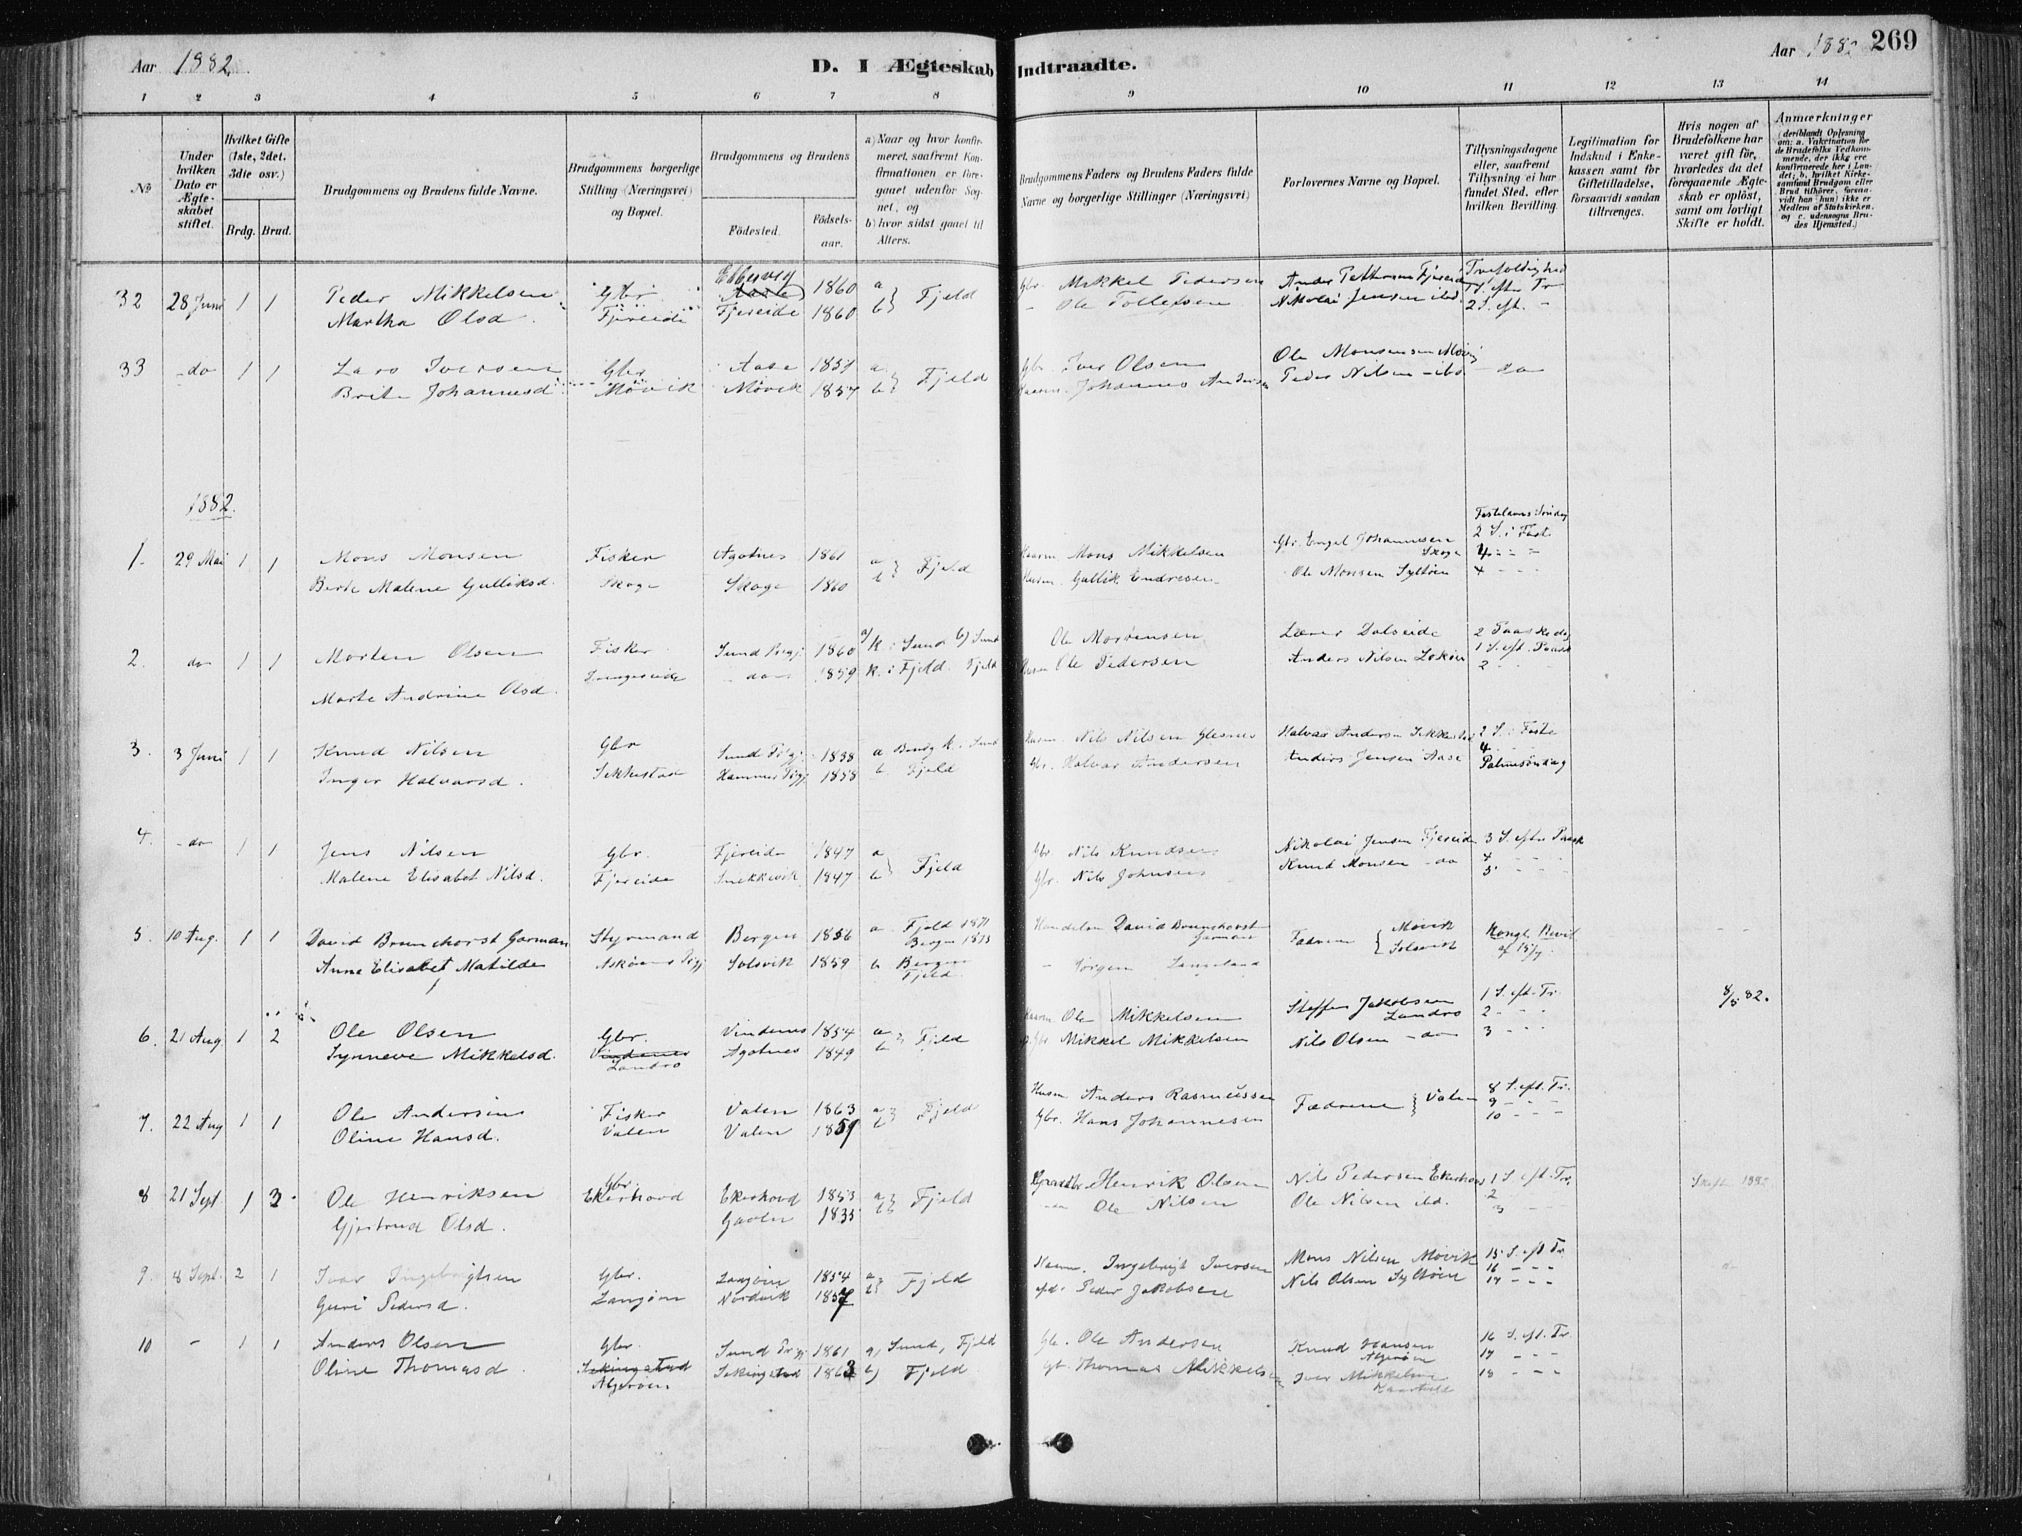 Aar 1882.
D. I Ægteskab Indtraadte.
Aar 1882 269
1 2 3 4 5 6 7 8 9 10 11 12 13 14
No
Under hvilken Dato er Ægteskabet stiftet.
Hvilket Gifte (1ste, 2det, 3die osv.)
Brdg. Brud.
Brudgommens og Brudens fulde Navne.
Brudgommens borgerlige Stilling (Næringsvei) og Bopæl.
Brudgommens og Brudens
Fødested.
Fødselsaar.
a) Naar og hvor konfirmeret, saafremt Konfirmationen er foregaaet udenfor Sognet, og
b) hvor sidst gaaet til Alters.
Brudgommens Faders og Brudens Faders fulde Navne og borgerlige Stillinger (Næringsvei)
Forlovernes Navne og Bopæl.
Tillysningsdagene eller, saafremt Tillysning ei har fundet Sted, efter hvilken Bevilling.
Legitimation for Indskud i Enkekassen samt for Giftetilladelse, forsaavidt saadan tiltrænges.
Hvis nogen af Brudefolkene har været gift før, hvorledes da det foregaaende Ægteskab er opløst, samt om lovligt Skifte er holdt.
Anmærkninger
(deriblandt Oplysning om: a. Vakcination for de Brudefolks Vedkommende, der ikke ere konfirmerede her i Landet; b. hvilket Kirkesamfund Brudgom eller Brud tilhører, forsaavidt han (hun) ikke er Medlem af Statskirken, og c. udensogns Brudes Hjemsted.)
32 28 Juni 1 1 Peder Mikkelsen Gbr. Ebbesvig 1860 a Gbr. Mikkel Pedersen Anders Pettersen Fjereide Trefoldighed
Martha Olsd. Fjereide Fjereide 1860 b } Fjeld - Ole Tollefsen Nikolai Jensen ibd. 1 S. eft. Tr
2 S. eft. -
33 - do 1 1 Lars Iversen Gbr. Aase 1857 a Gbr. Iver Olsen Ole Monsen Møvig
Brite Johannesd. Møvik Møvik 1857 b } Fjeld Johannes Andersen Peder Nilsen - ibd - do
1882.
1. 29 Mai 1 1 Mons Monsen Fisker Agotnes 1861 a Mons Mikkelsen Gbr. Engel Johannesen Skoge Fastelavns Søndag
2 S. i Fast
Berte Malene Gulliksd. Skoge Skoge 1860 b } Fjeld Husm. Gullik Endresen Ole Monsen Syltøen 4 - - -
2. do 1 1 Morten Olsen Fisker Sund Prgj. 1860 a) k. i Sund b) Sund Ole Mortensen 2 Paaskedag
Langeseide - do - 1859 k. i Fjeld. Fjeld Husm Ole Pedersen Anders Nilsen Lokøen 1 S. eft. Paask
Marte Andrine Olsd. 2 - - -
3. 3 Juni 1 1 Knud Nilsen Gbr Sund Prgj. 1838 a Husm. Nils Nilsen Glesnes Halvar Andersen Sekkestad 2 S. i Faste
Inger Halvarsd. Sekkestad Hammer Prgj 1858 b Fjeld Gbr. Halvar Andersen Anders Jensen Aase 4 -
Palmesøndag
4. - do 1 1 Jens Nilsen Gbr. Fjereide 1847 a Gbr Nils Knudsen Nikolai Jensen Fjereide 3 S. efter Paask
Malene Elisabet Nilsd. Fjereide Snekkevik 1847 b } Fjeld Gbr. Nils Johnsen Knud Monsen - do 4 - - -
5 - - -
5. 10 Aug. 1 1 David Brunchorst Garman Styrmand Bergen 1856 a Fjeld 1871 David Brunchorst Garman Fædrene { Møvik Kongl. Bevil
Bergen 1873
Anna Elisabet Matilde Askøens Prgj Solsvik 1859 b Bergen - Jørgen Langeland Solsvik
Fjeld
6. 21 Aug 1 2 Ole Olsen Gbr. Vindenes 1854 a Ole Mikkelsen Steffen Jakobsen Landro 1 S. eft. Tr. 8/8 82.
Synneve Mikkelsd. Vindenes Agotnes 1849 b } Fjeld Mikkel Mikkelsen Nils Olsen - do 2 - - -
Landro 3 - - -
7. 22 Aug 1 1 Ole Andersen Fisker Valen 1863 a Husm Anders Rasmussen Fædrene } Valen 8 S. eft. Tr.
Oline Hansd. Valen Valen 1859 b } Fjeld Gbr. Hans Johannesen 9 - - -
10 - - -
8 21 Sept. 1 3. Ole Henriksen Gbr. Ekerhovd Ekerhovd 1853 a Henrik Olsen Nils Pedersen Ekerhovd 1 S. eft. Tr.
Gjertrud Olsd. 1835 b } Fjeld - do Ole Nilsen Ole Nilsen ibd. 2
3 - - -
9. 8 Sept. 2 1 Ivar Ingebrigtsen Gbr. Langøen 1854 a Ingebrigt Iversen Mons Nilsen Møvik 15. S. eft Tr
Guri Pedersd. Langøen Nordvik 1857 b } Fjeld Peder Jakobsen Nils Olsen Syltøen 16 - - -
17 - - -
10 - 1 1 Anders Olsen Gbr. Sund Prgj 1861 a) Sund, Fjeld Gbr. Ole Andersen Knud Hansen Algerøen 16 S. eft. Tr.
Oline Thomasd. Sekingstad Sekingstad 1863 b) Fjeld Gbr. Thomas Mikkelsen Iver Mikkelsen 17 - - -
Algerøen 18 - - -